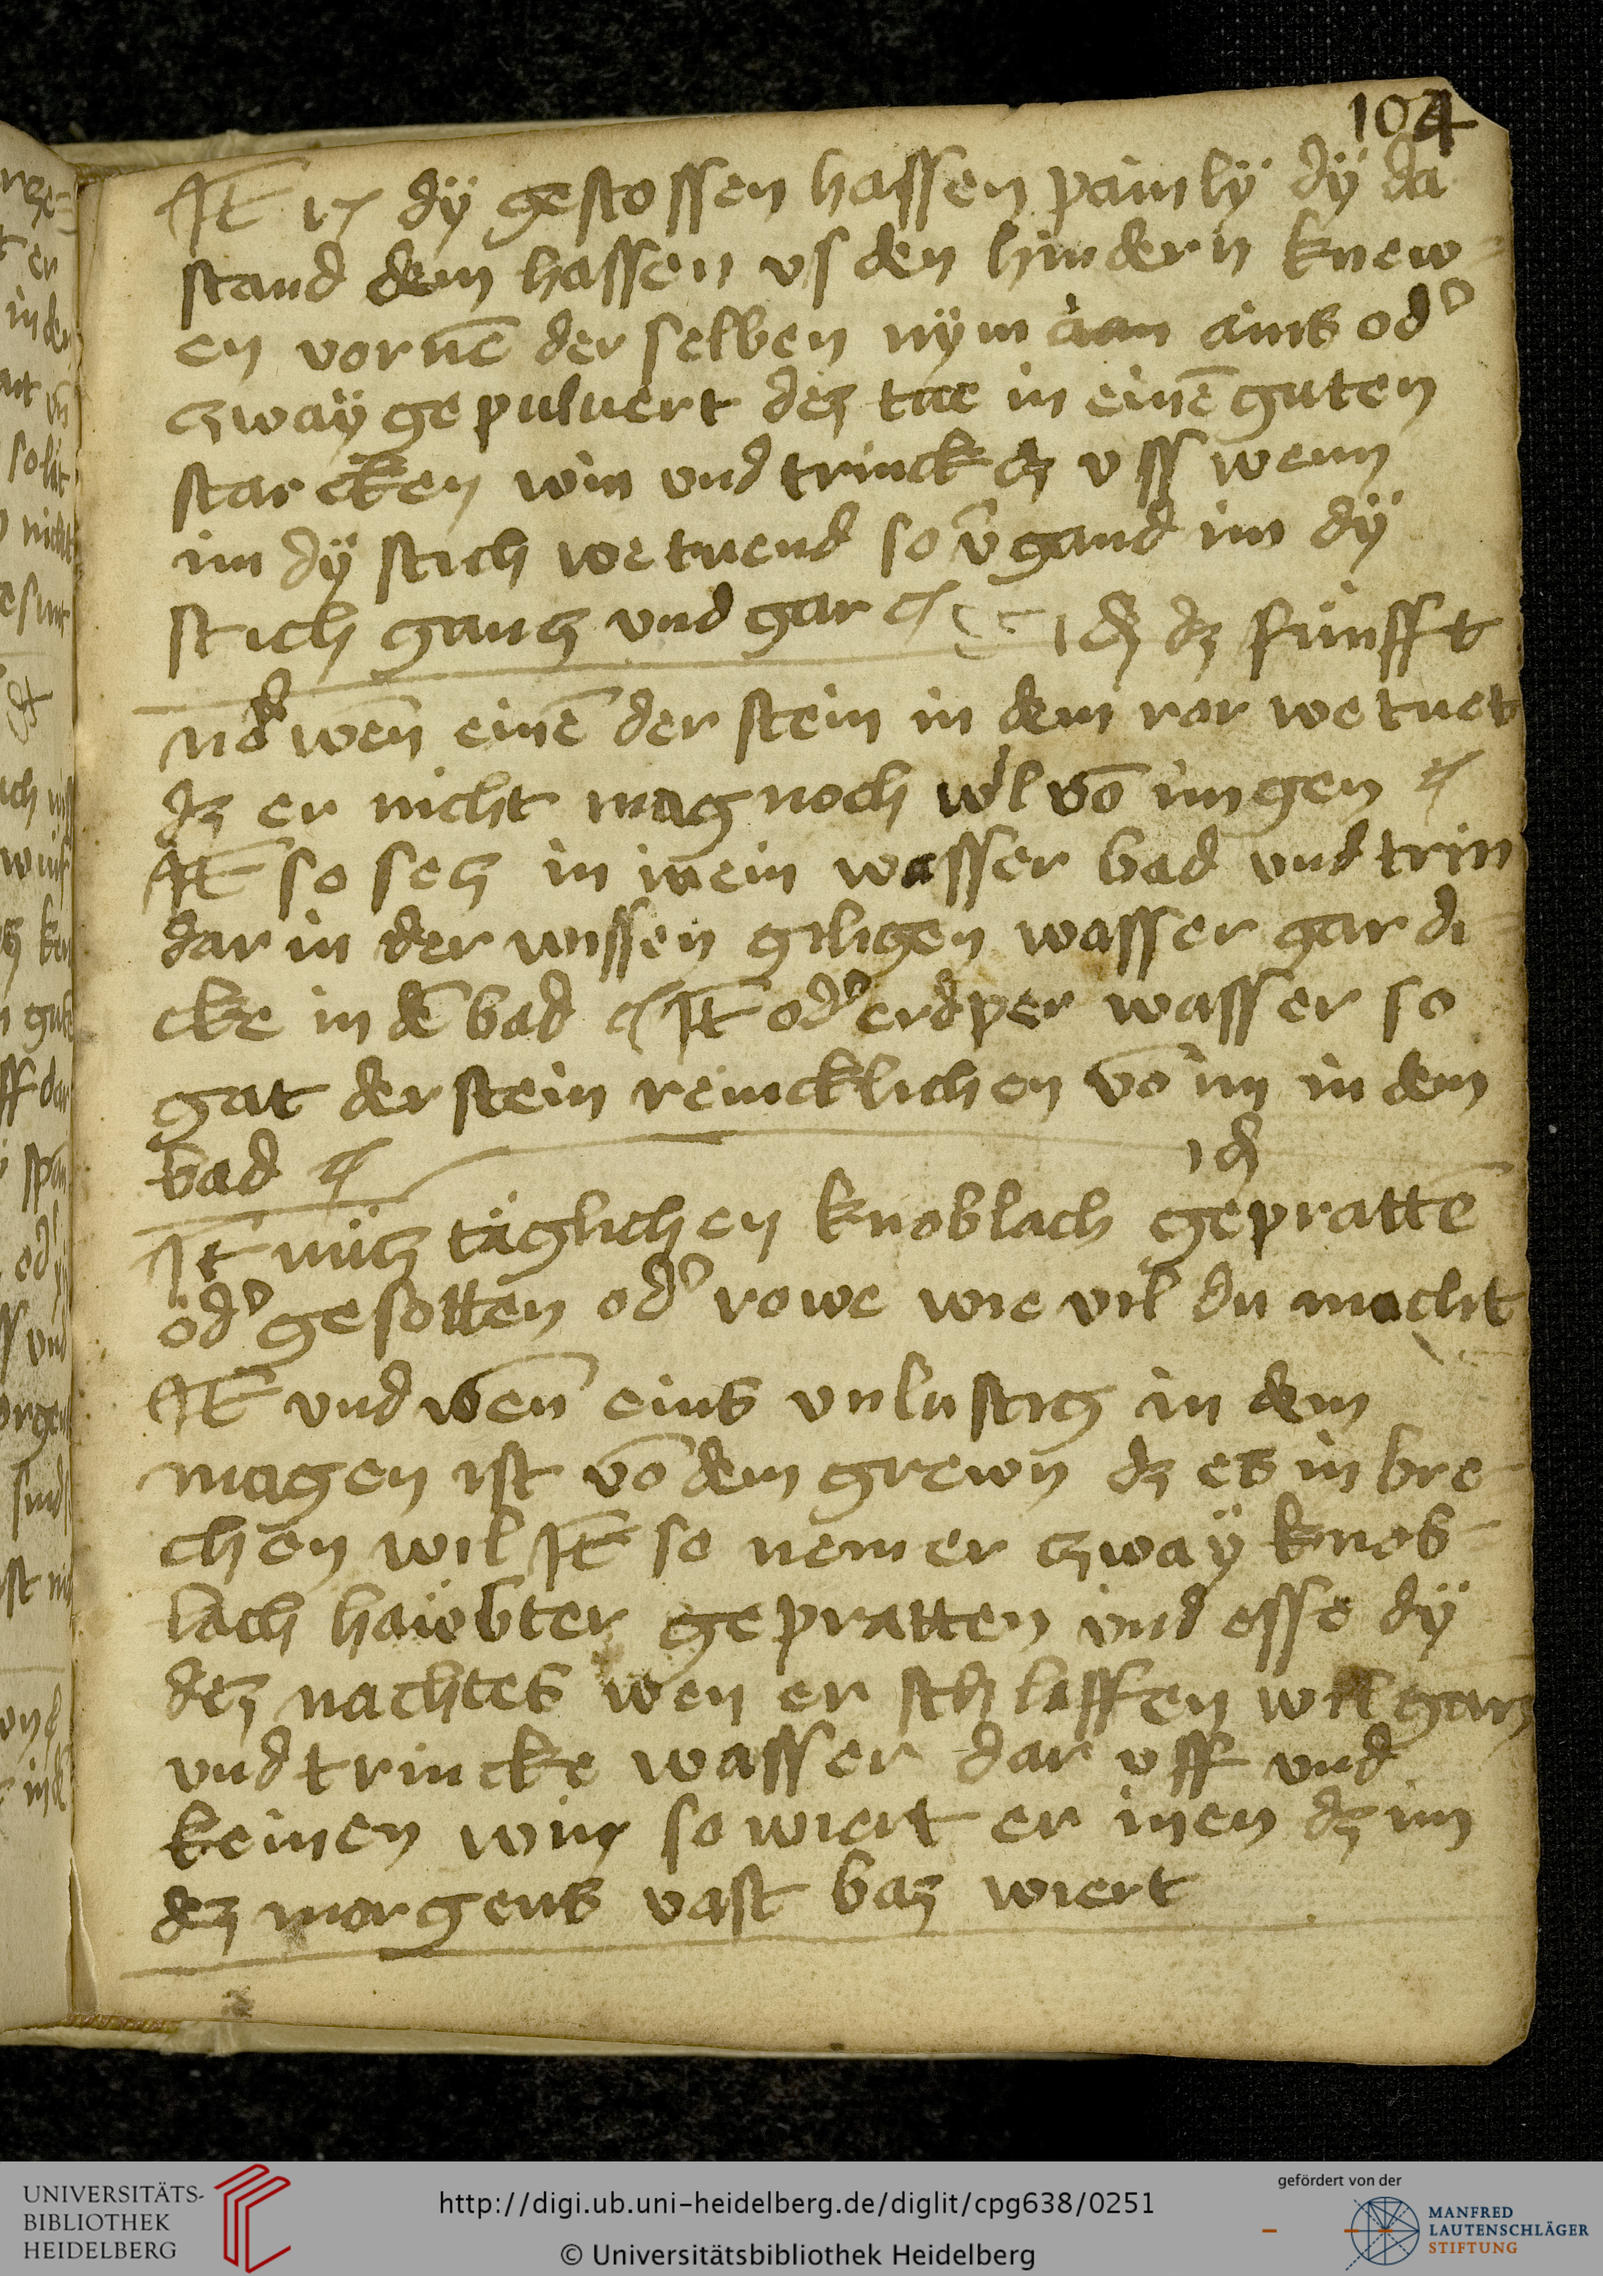 104
It 17 dÿ gestossen hassen painlÿ dÿ da
stand dem hassen vs den hindern knew-
en vornē der selben nÿm ains od'
zwaÿ gepuluert dez tue in einē guten
starcken win vnd trinck ez vss wenn
im dÿ stich we tuend so v̄gand im dÿ
stich gancz vnd gar dz fünfft
wēn einē der stein in dem ror we tuet
dz er nicht mag noch wil vō im gen
It so secz in in ein wasser bad vnd trin
dar in der wissen giligen wasser gar di
cke in dē bad It od' erdper wasser so
gat der stein reincklichen vō im in dem
bad
It nücz täglichen knoblach geprattē
od' gesotten od' rowe wie vil du macht
It vnd wen̄ eins vnlustig in dem
magen ist vō dem grewn dz es in bre-
chen wil It so nem er zwaÿ knob-
lach haübter gepratten vnd esse dÿ
dez nachtes wen er schlaffen wil gan
vnd trincke wasser dar vff vnd
keinen win so wiert er inen dz im
dz morgens vast baz wiert
UNIVERSITÄTS-
BIBLIOTHEK
HEIDELBERG
http://digi.ub.uni-heidelberg.de/diglit/cpg638/0251
© Universitätsbibliothek Heidelberg
gefördert von der
MANFRED
LAUTENSCHLÄGER
STIFTUNG